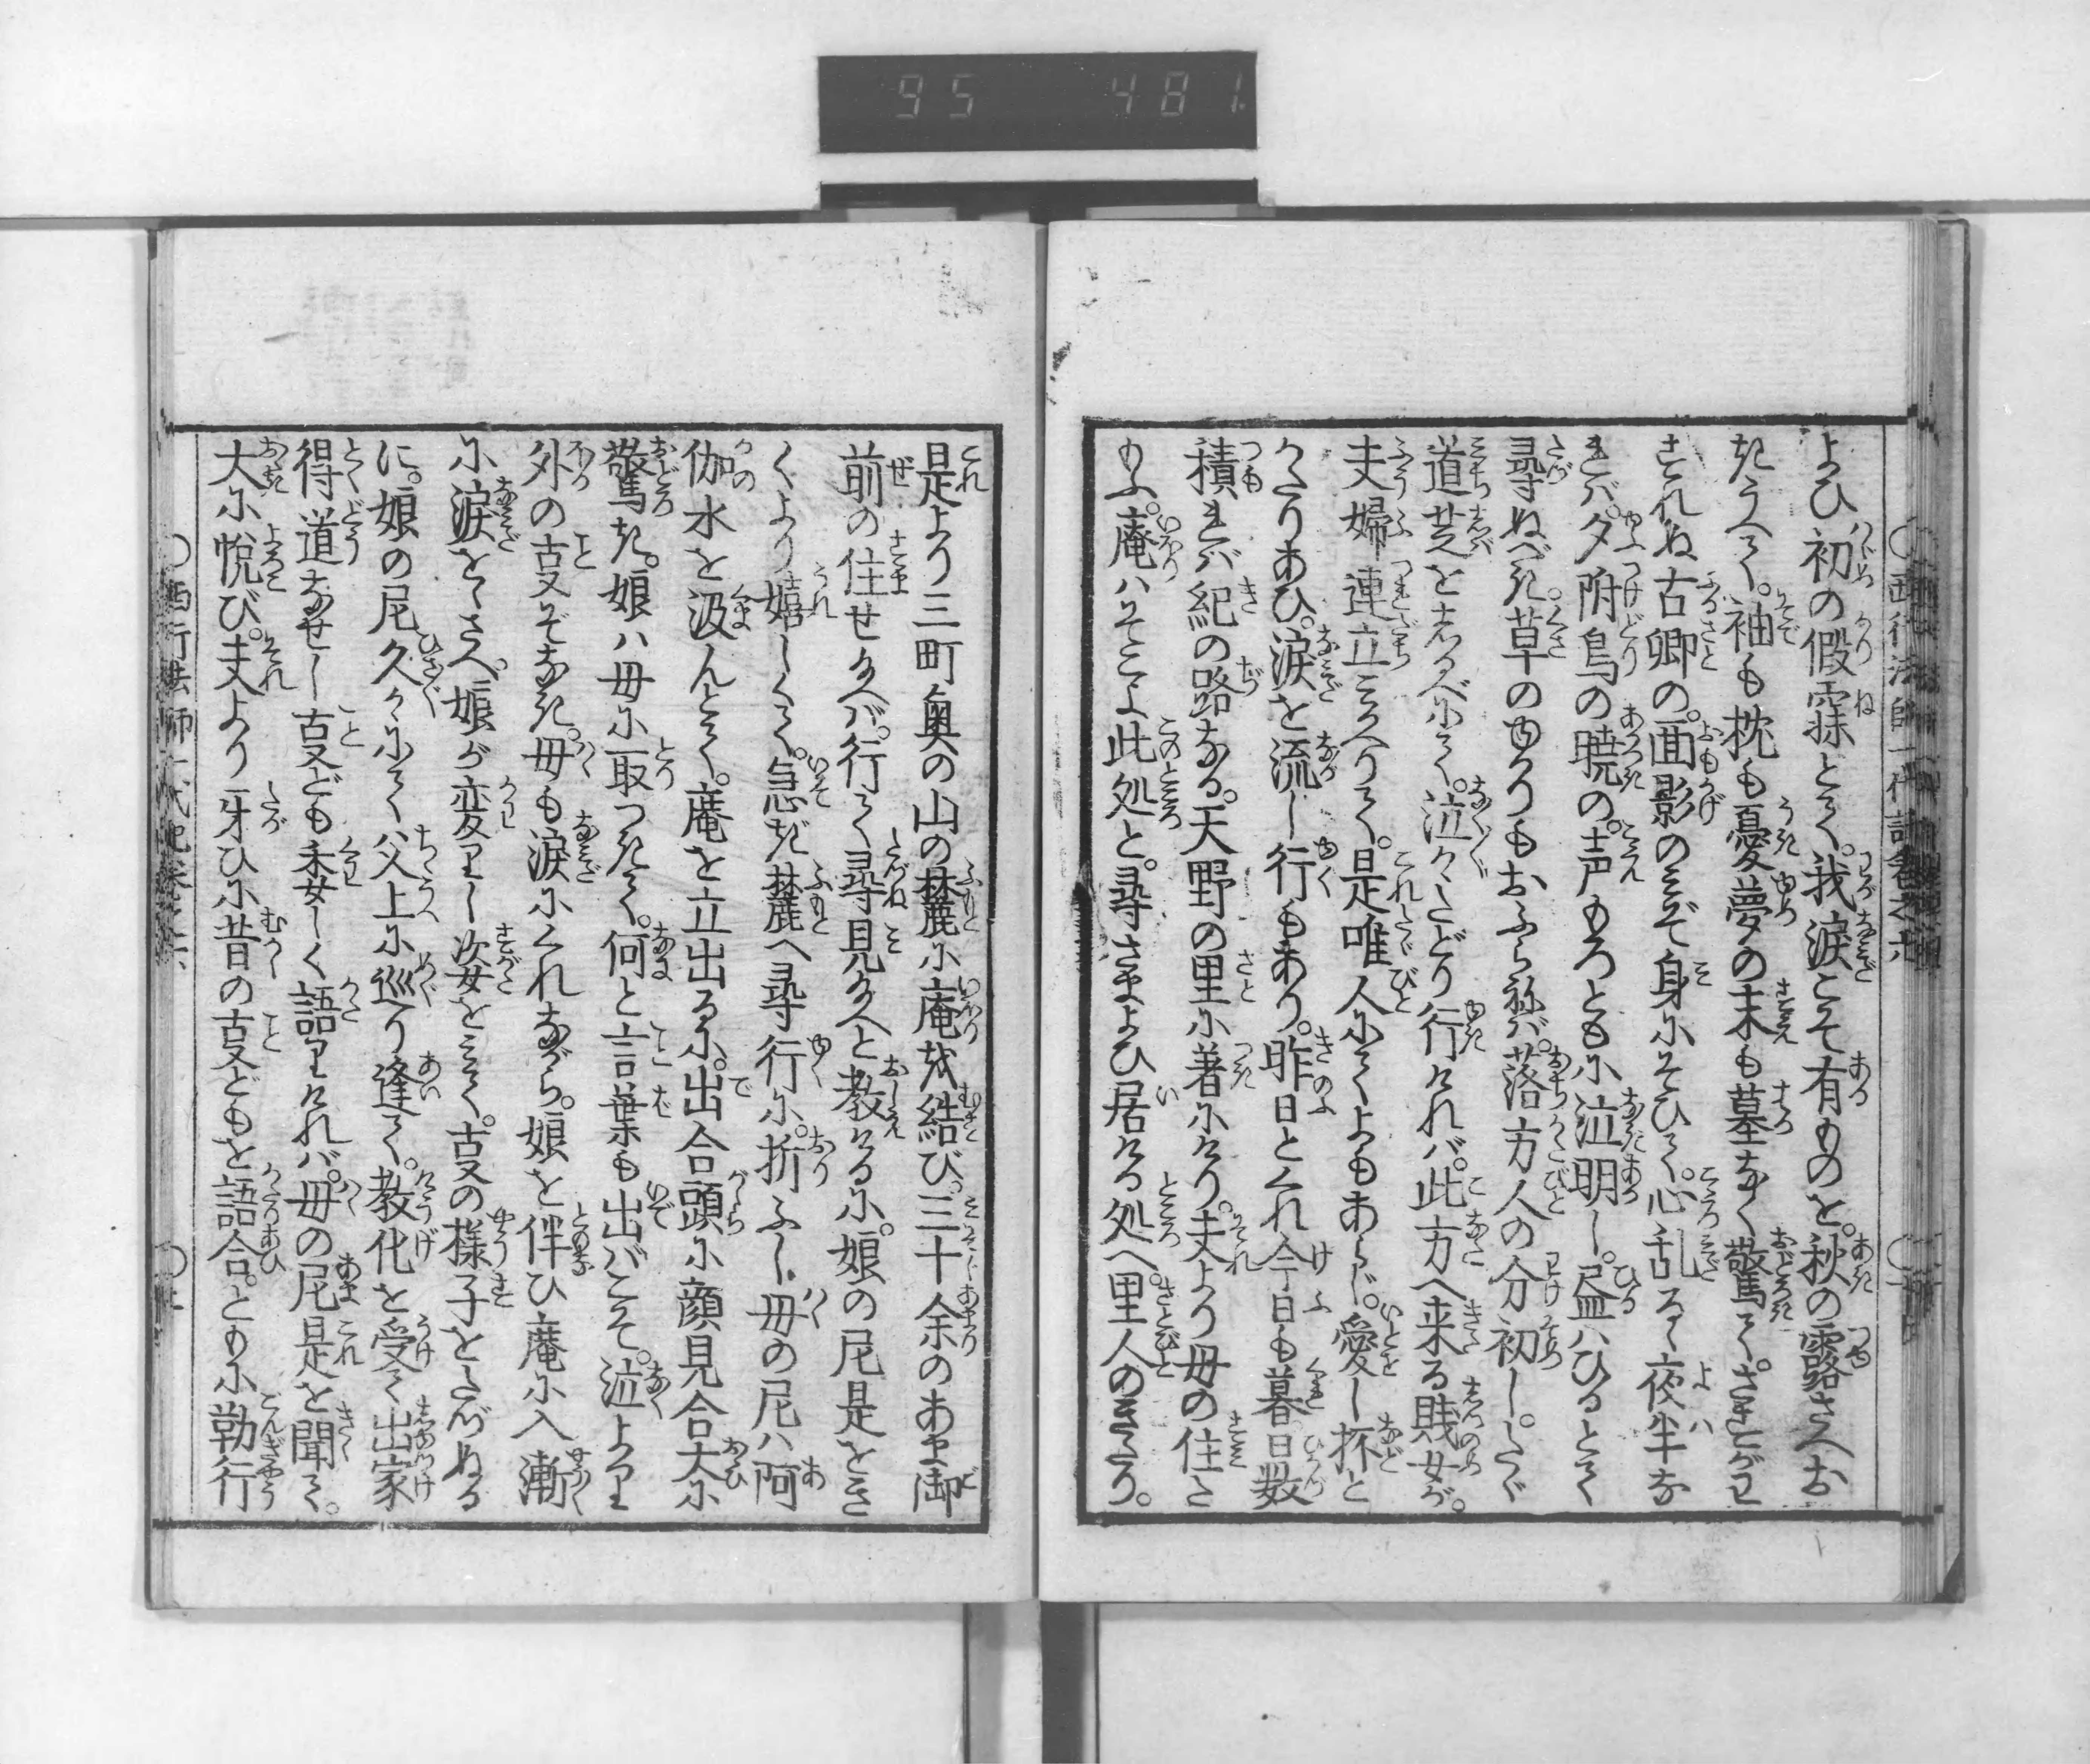 95 481
よひ初の假寐とて。我涙こそ有ものを。秋の露さへお
きうへて。袖も枕も憂夢の末も墓なく驚て。さきだゝり
されぬ古郷の。面影のミぞ身にそひて。心乱るゝ夜半な
れバ。夕附鳥の暁の。声もろともに泣明し。昼ハひるとて
尋ぬべき。草のゆかりもあらねバ。落方人の分初し。たゞ
道芝をしるべにて。泣々たどり行けれバ。此方へ来る賎女が。
夫婦連立ミかへりて。是唯人にてよもあらじ。愛し抔と
かたりあひ。涙を流し行もあり。昨日とくれ今日も暮日数
積れバ紀の路なる。天野の里に著にけり。夫より母の住た
もふ。庵ハそこよ此処と。尋さまよひ居ける処へ。里人のきたり。
是より三町奥の山の麓に庵を結び。三十余のあま御
前の住せ給へバ。行て尋見給へと教けるに。娘の尼是をき
くより嬉しくて。急ぎ麓へ尋行に。折ふし母の尼ハ阿
伽水を汲んとて。庵を立出るに。出合頭に顔見合大に
驚き。娘ハ母に取つきて。何と言葉も出バこそ。泣より
外の事ぞなき。母も涙にくれながら。娘を伴ひ庵に入漸
に涙をゝさへ。娘が変りし姿をミて。事の様子をたづぬる
に。娘の尼久々にて父上に巡り逢て。教化を受て出家
得道なせし事ども委しく語りけれバ。母の尼是を聞て。
大に悦び。夫より互ひに昔の事どもを語合。ともに勤行
西行法師一代記巻之六